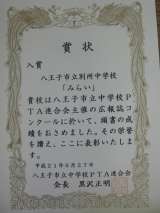 賞状
入賞
八王子市立別所中学校
「みらい」
貴校は八王子市立中学校P
TA連合会主催の広報誌コン
クールに於いて、頭書の成
績をおさめました。その栄誉
を讃え、ここに表彰いたしま
す。
平成21年6月27日
八王子市立中学校PTA連合会
会長 黒沢正明